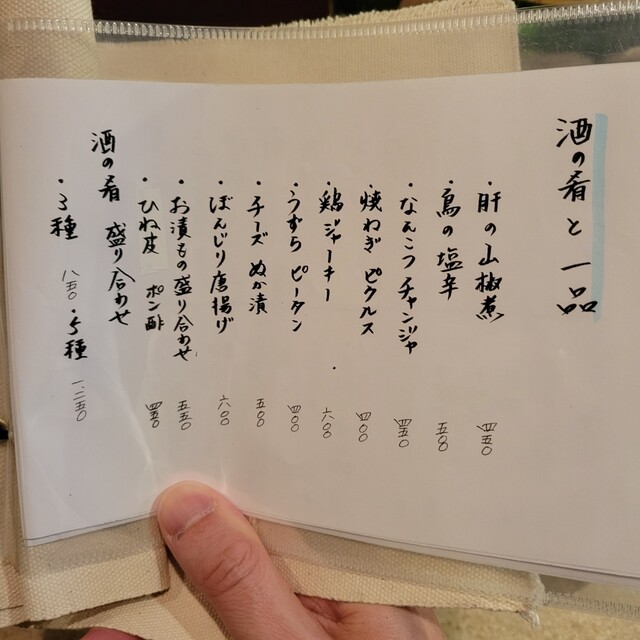 酒の肴と一品
・肝の山椒煮 四五〇
・鳥の塩辛 五〇〇
・なんこつチャンジャ 四五〇
・焼ねぎピクルス 四〇〇
・鶏ジャーキー 六〇〇
・うずらピータン 四〇〇
・チーズぬか漬 五〇〇
・ぼんじり唐揚げ 六〇〇
・お漬もの盛り合わせ 五五〇
・ひね皮ポン酢 四五〇
酒の肴 盛り合わせ
・3種 八五〇・5種 一、二五〇